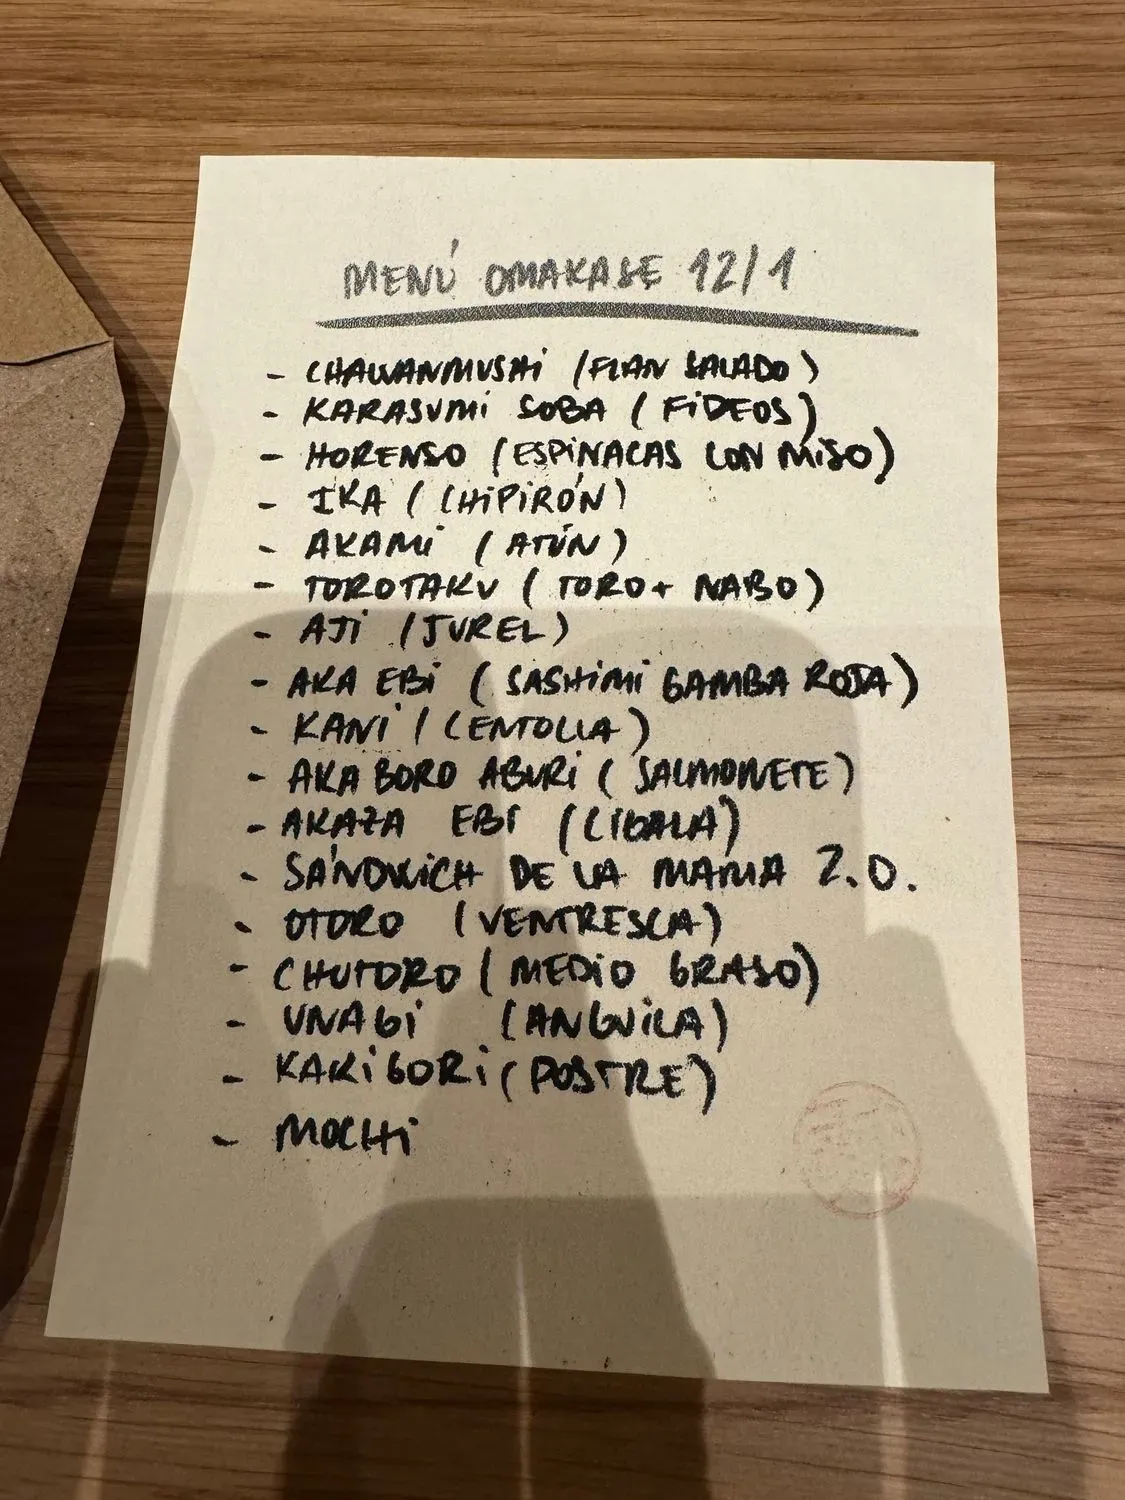 MENÚ OMAKASE 12/1
- CHAWANMUSHI (FLAN SALADO)
- KARASUMI SOBA (FIDEOS)
- HORENSO (ESPINACAS CON MISO)
- IKA (CHIPIRÓN)
- AKAMI (ATÚN)
- TOROTAKU (TORO + NABO)
- AJI (JUREL)
- AKA EBI (SASHIMI GAMBA ROJA)
- KANI (CENTOLLA)
- AKA BORO ABURI (SALMONETE)
- AKAZA EBI (CIGALA)
- SÁNDWICH DE LA MAMA 2.0.
- OTORO (VENTRESCA)
- CHUTORO (MEDIO GRASO)
- UNAGI (ANGUILA)
- KAKIGORI (POSTRE)
- MOCHI